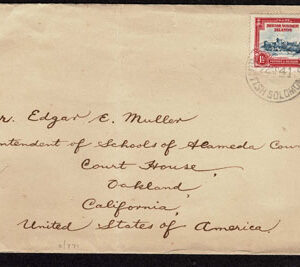 BRITISH SOLOMON
ISLANDS
1½
r. Edgar E. Muller
ntendent of Schools of Alameda Cou
Court House,
Oakland,
California,
United States of America.